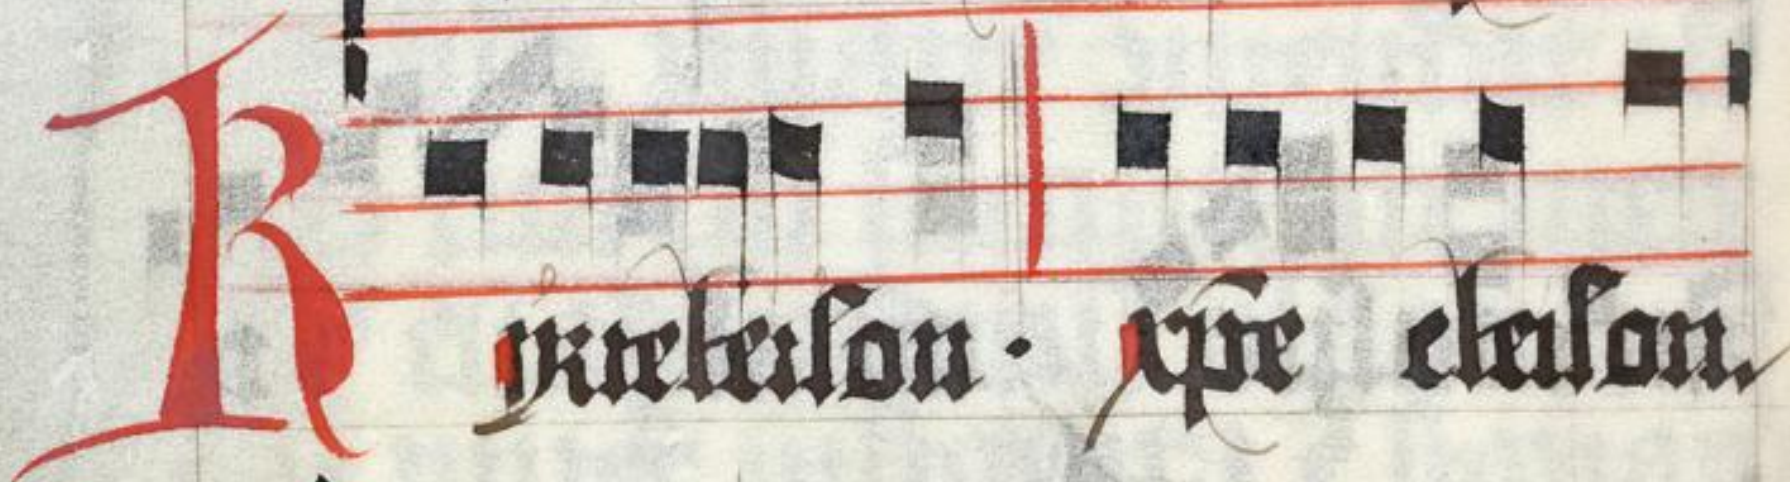 Kyrieleison · xp̄e eleison.